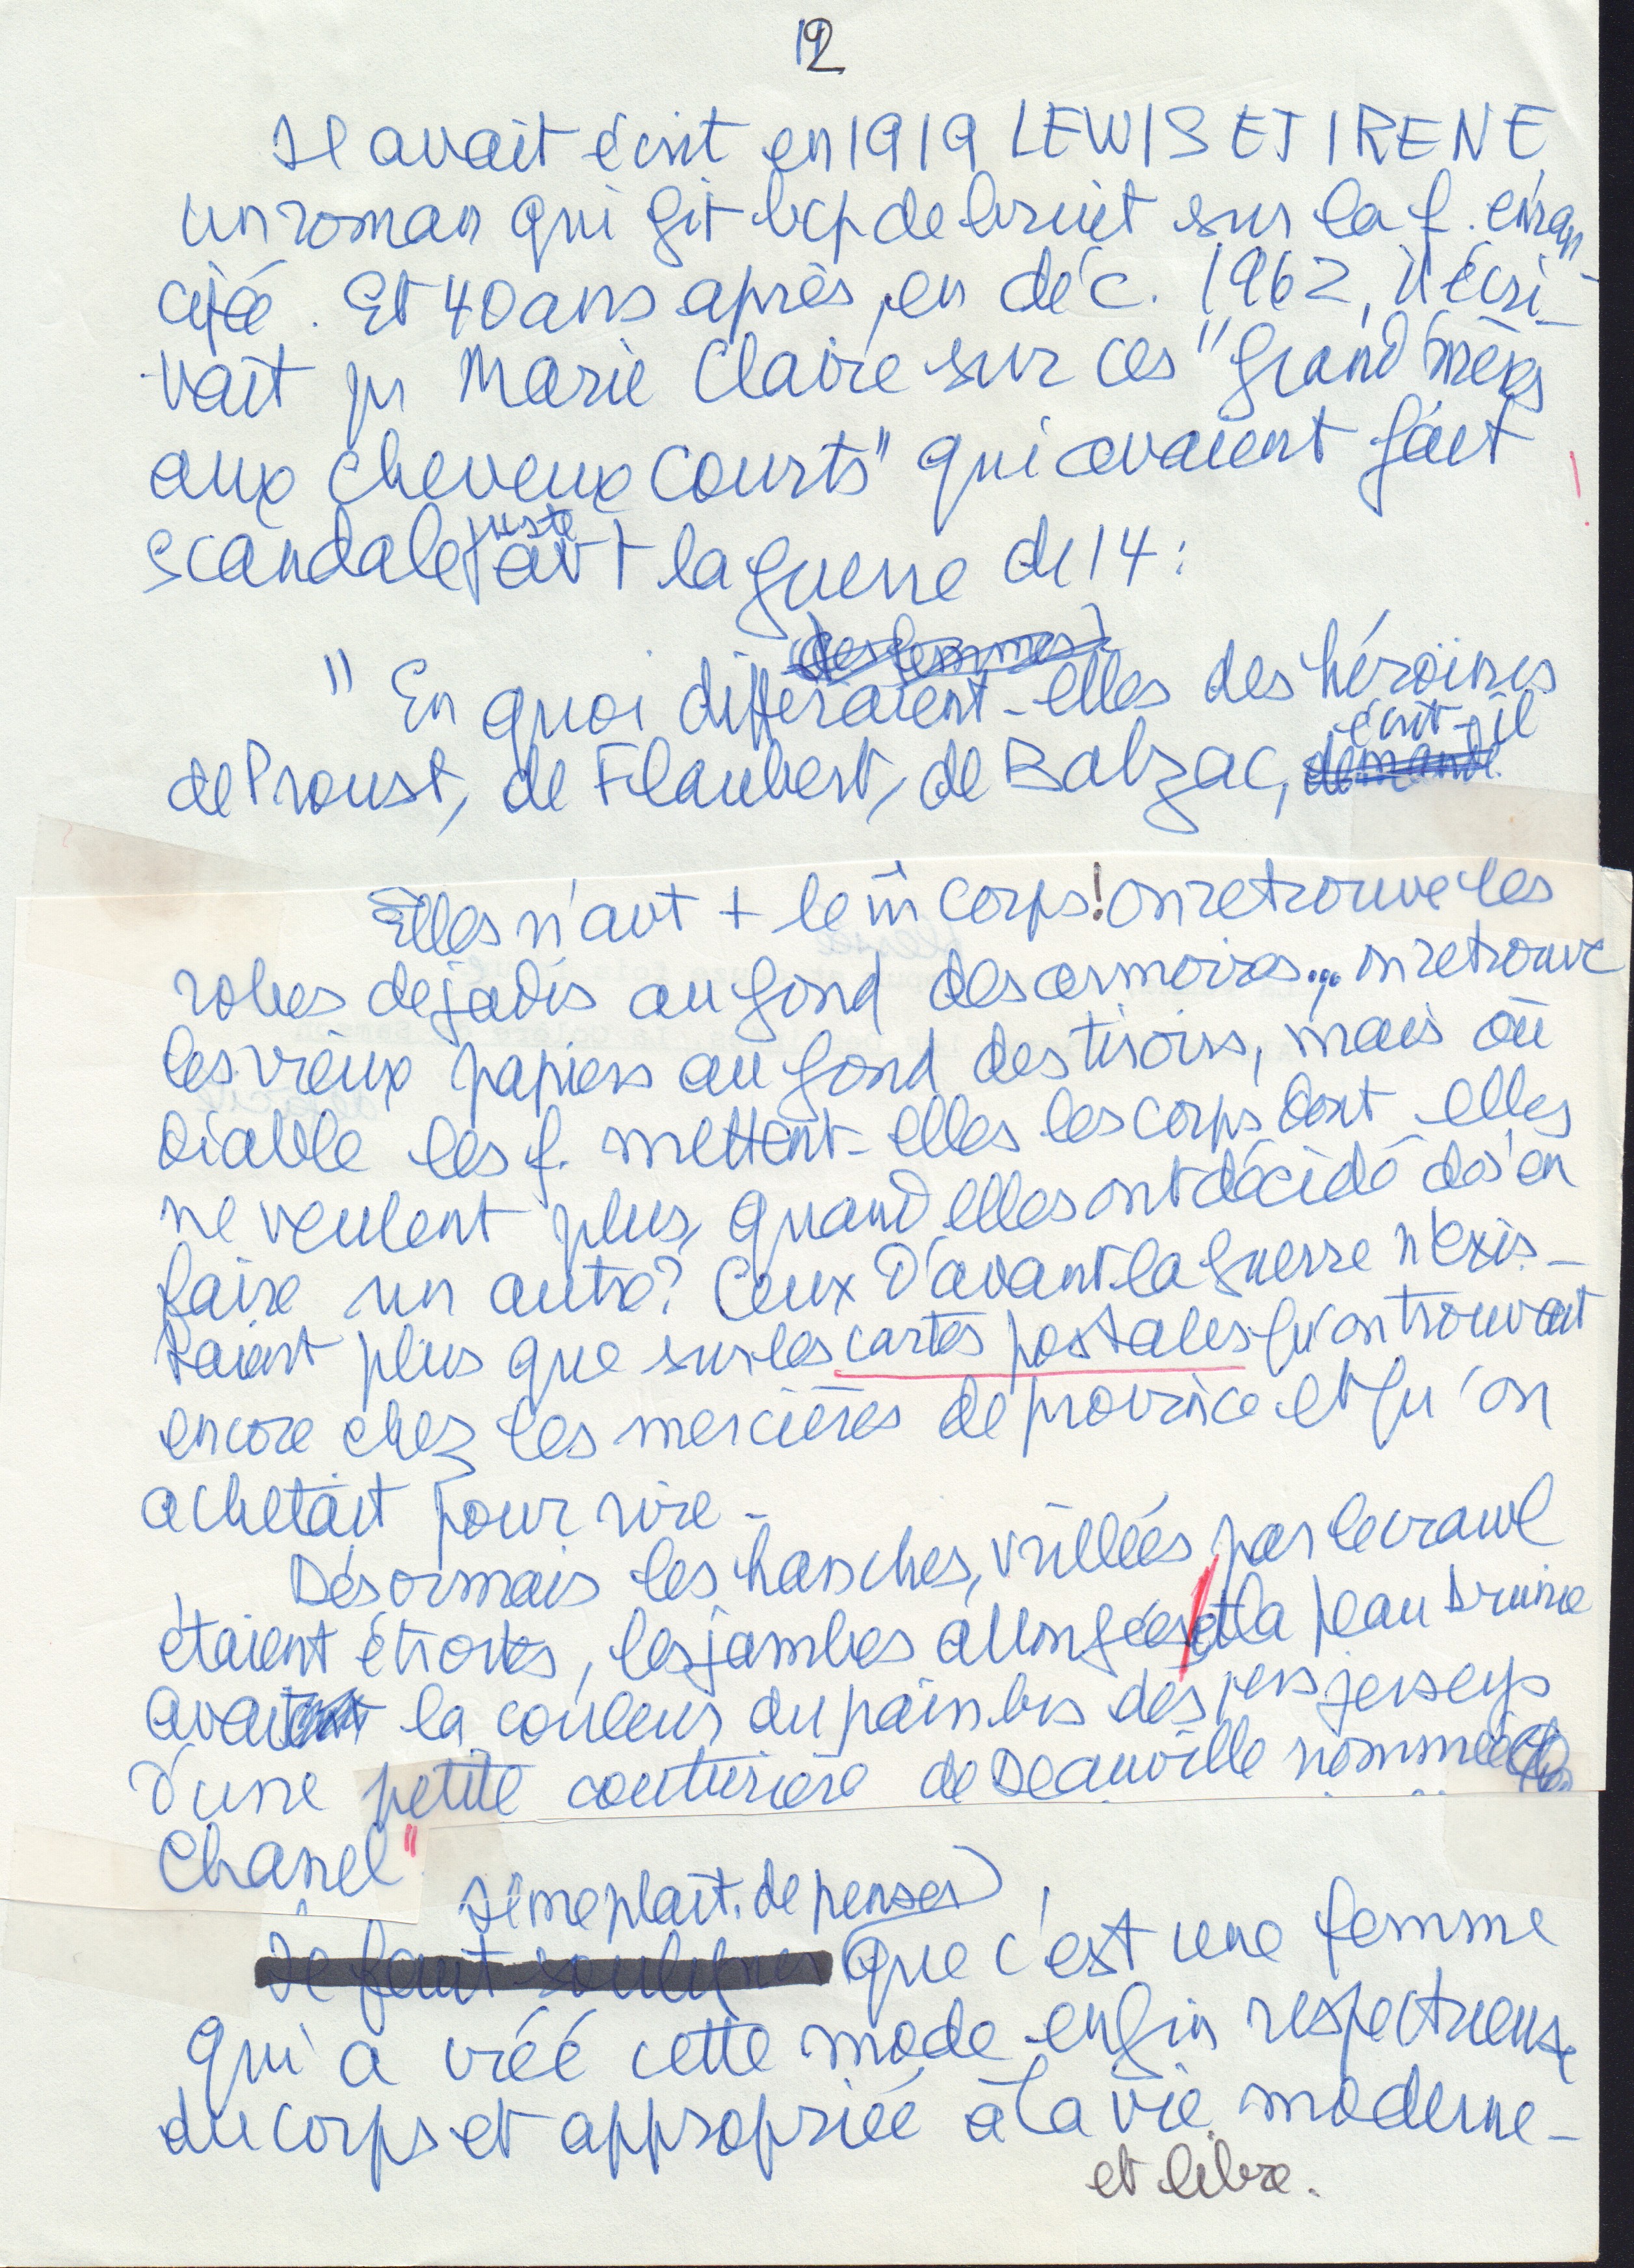 12
Il avait écrit en 1919 LEWIS ET IRENE,
un roman qui fit bcp de bruit sur la f. éman-
cipée. Et 40 ans après, en déc. 1962, il écri-
vait pr Marie Claire sur ces "grand'mères
aux cheveux courts" qui avaient fait
scandale juste avt la guerre de 14 :
(des femmes)
" En quoi différaient-elles des héroïnes
écrit-il
de Proust, de Flaubert, de Balzac, demande
Elles n'ont + le m̂ corps! On retrouve les
robes de jadis au fond des armoires... on retrouve
les vieux papiers au fond des tiroirs, mais où
diable les f. mettent-elles les corps dont elles
ne veulent plus, quand elles ont décidé de s'en
faire un autre? Ceux d'avant-la guerre n'exis-
taient plus que sur les cartes postales qu'on trouvait
encore chez les mercières de province et qu'on
achetait pour rire -
Désormais les hanches, vrillées par le crawl
étaient étroites, les jambes allongées et la peau brune
avait la couleur du pain bis des 1ers jerseys
d'une petite couturière de Deauville nommée
Chanel"
Il me plaît de penser
Il faut souligner que c'est une femme
qui a créé cette mode enfin respectueuse
du corps et appropriée à la vie moderne -
et libre.